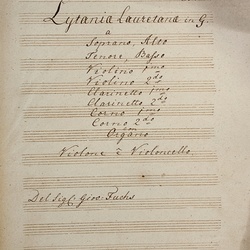 Lytania Lauretana in G.
a
Soprano, Alto
Tenore, Basso
Violino 1mo
Violino 2do
Clarinetto 1mo
Clarinetto 2do
Corno 1mo
Corno 2do
con
Organo
Violone è Violoncello.
Del Sigl: Giov: Fuchs